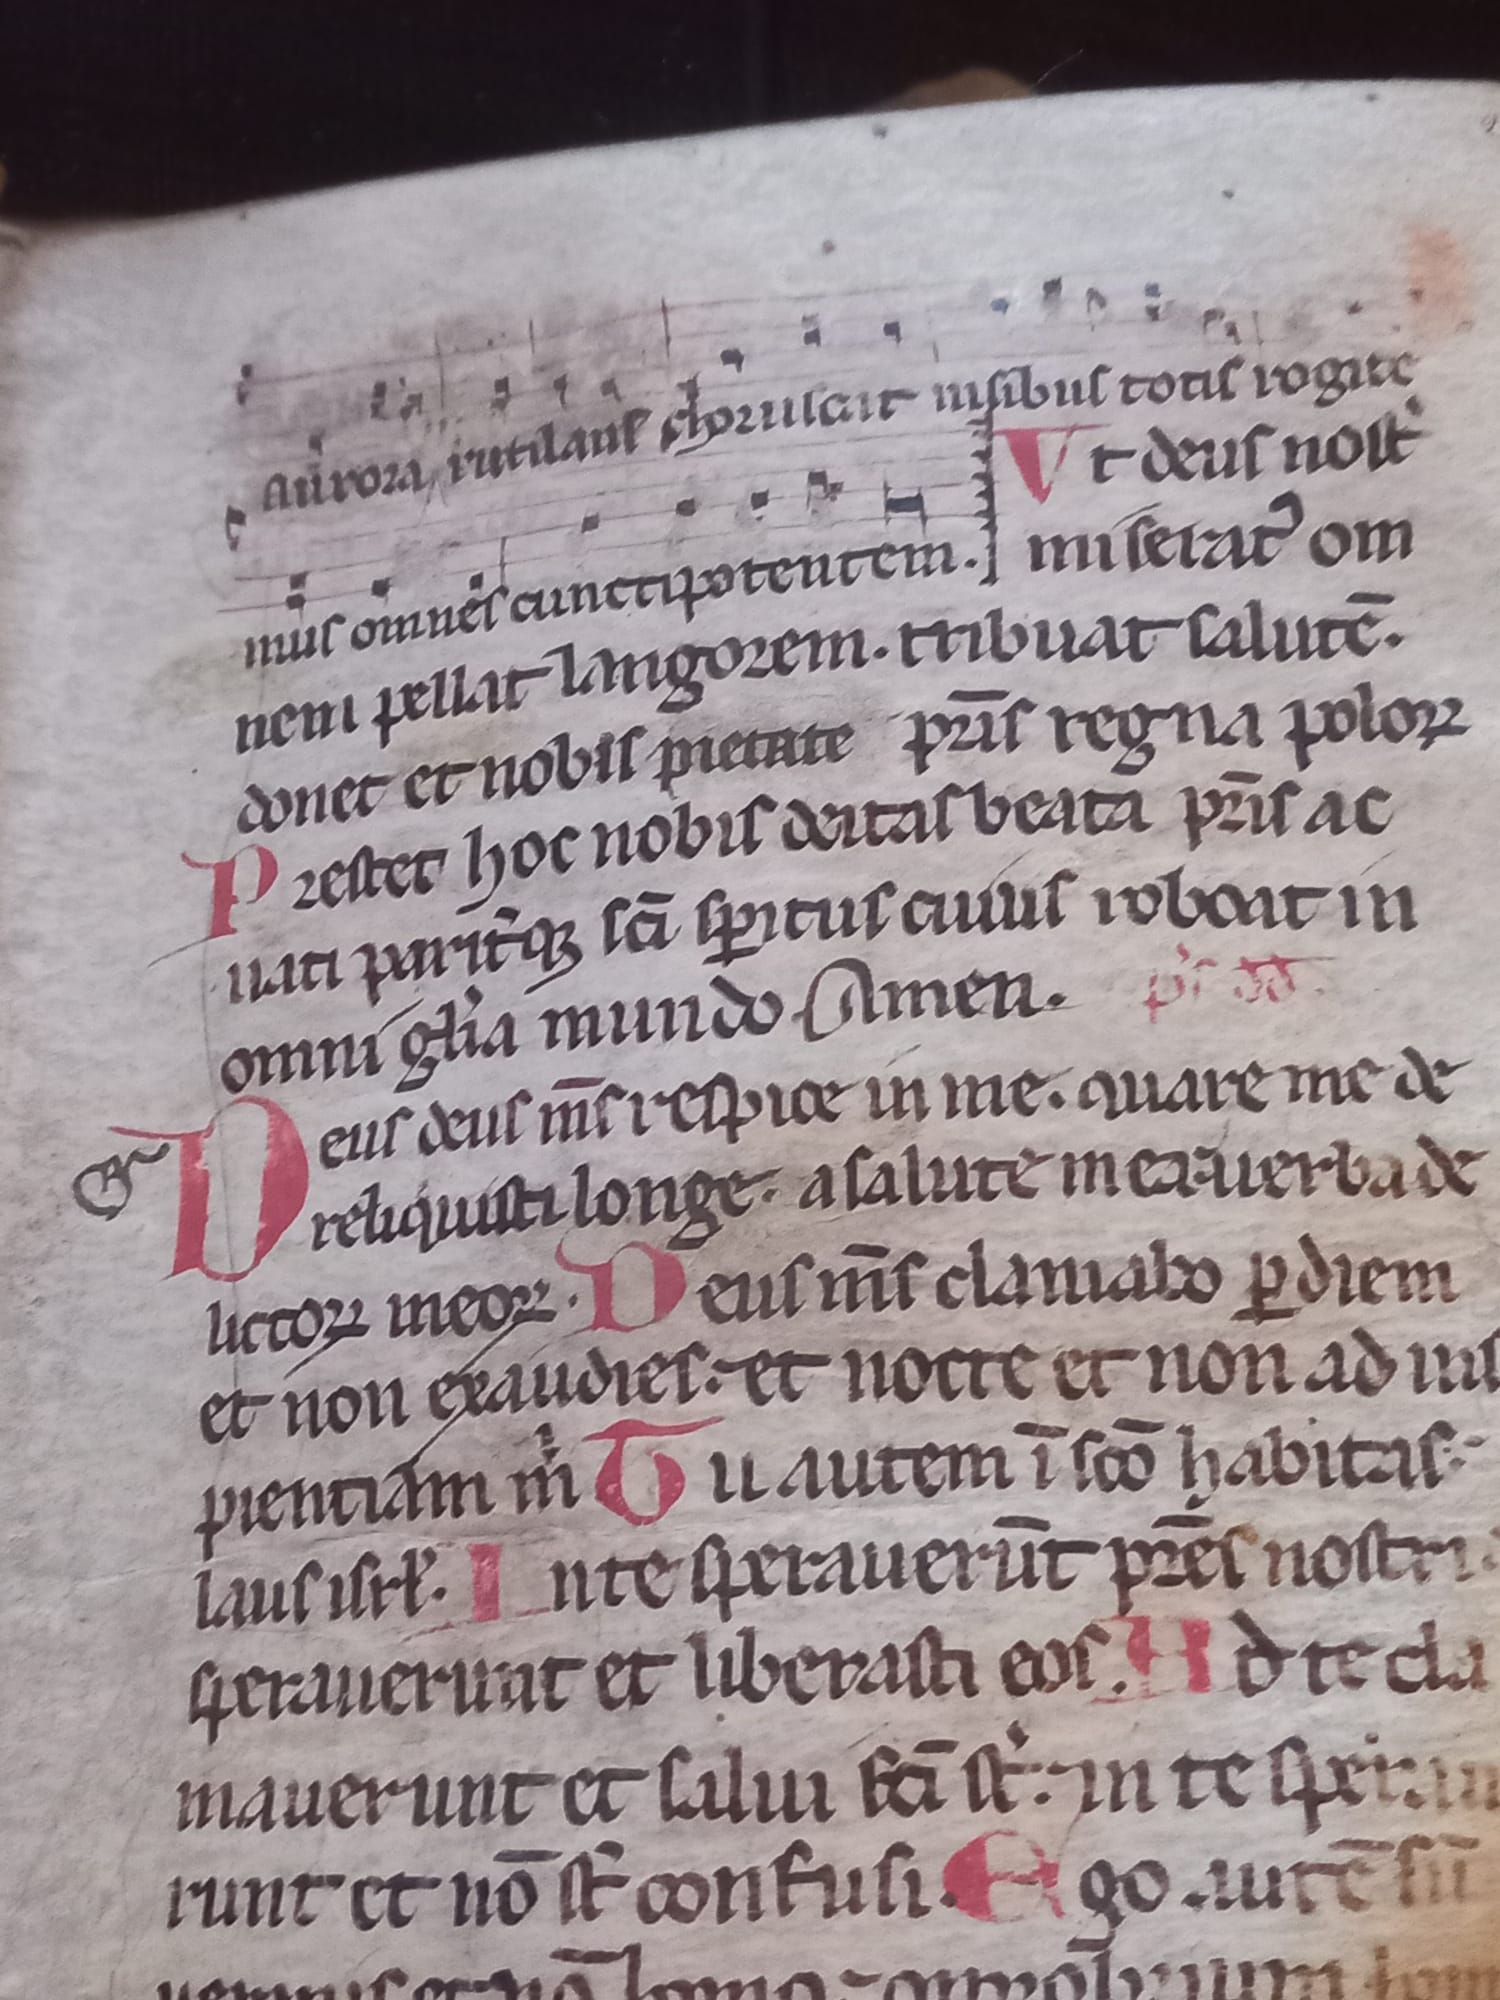 aurora rutilans choruscat nisibus totis rogite
mus omnes cunctipotentem. Ut deus nostr̄
miserat᷑ om
nem pellat langorem. tribuat salutē.
donet et nobis pietate pr̄is regna poloꝝ
Prestet hoc nobis deitas beata pr̄is ac
nati parit̄qꝫ sc̄i sp̄ritus cuius reboat in
omni gl̓ia mundo Amen. ps̓ dd.
Deus deus m̄s respice in me. quare me de
reliquisti longe. a salute mea uerba de
lictoꝝ meoꝝ. Deus m̄s clamabo ꝑ diem
et non exaudies: et nocte et non ad insi
pientiam m̓ Tu autem ī sc̄o habitas:
laus isrł. In te sperauerūt pr̄es nostri:
sperauerunt et liberasti eos. Ad te cla
mauerunt et salui fc̄i st̓: in te speraue
runt et nō st̓ confusi. Ego autē sū
uermis et nō homo: opprobrium hom